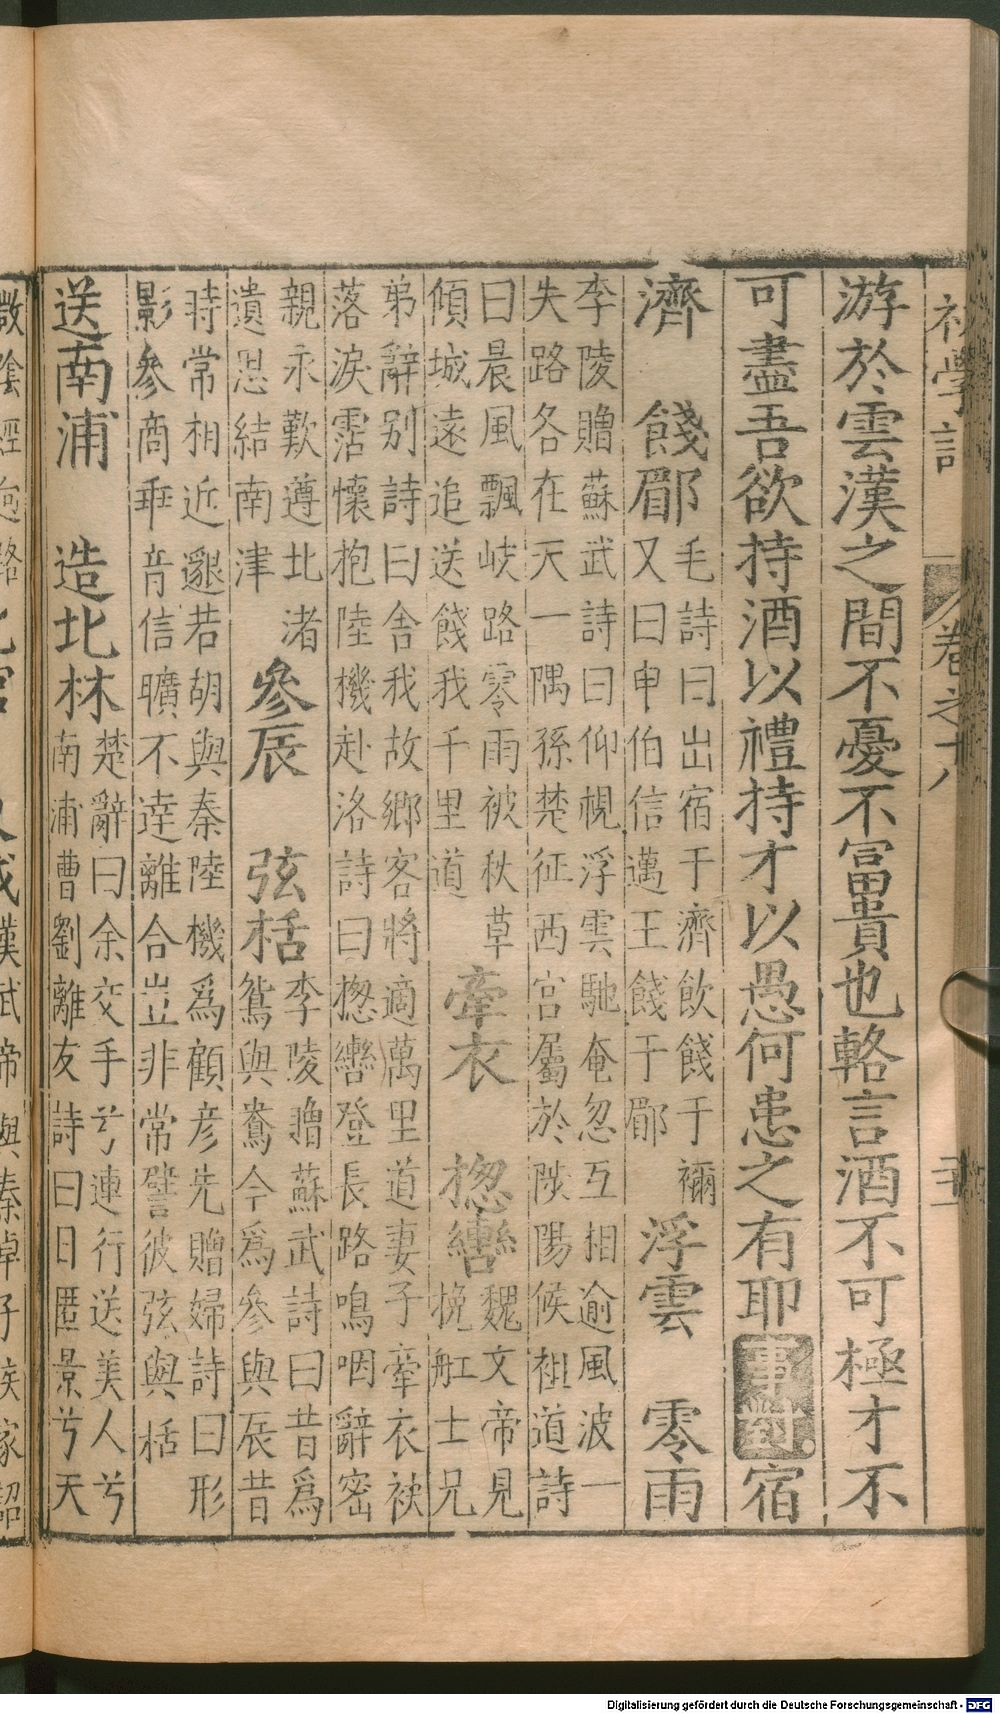 學記 卷之十八
游於雲漢之間不憂不富貴也輅言酒不可極才不
可盡吾欲持酒以禮持才以愚何患之有耶 事對 宿
濟 餞郿 毛詩曰出宿于濟飲餞于禰
又曰申伯信邁王餞于郿 浮雲 零雨
李陵贈蘇武詩曰仰視浮雲馳奄忽互相逾風波一
失路各在天一隅孫楚征西官屬於陟陽候祖道詩
曰晨風飄岐路零雨被秋草
傾城遠追送餞我千里道 牽衣 揔轡 魏文帝見
挽舡士兄
弟辭别詩曰舍我故鄉客將適萬里道妻子牽衣袂
落淚霑懷抱陸機赴洛詩曰揔轡登長路嗚咽辭密
親永歎遵北渚
遺思結南津 參辰 弦栝 李陵贈蘇武詩曰昔爲
鴛與鴦今爲參與辰昔
時常相近邈若胡與秦陸機爲顧彦先贈婦詩曰形
影參商乖音信曠不達離合豈非常譬彼弦與栝
送南浦 造北林 楚辭曰余交手兮連行送美人兮
南浦曹劉離友詩曰日匿景兮天
Digitalisierung gefördert durch die Deutsche Forschungsgemeinschaft - DFG